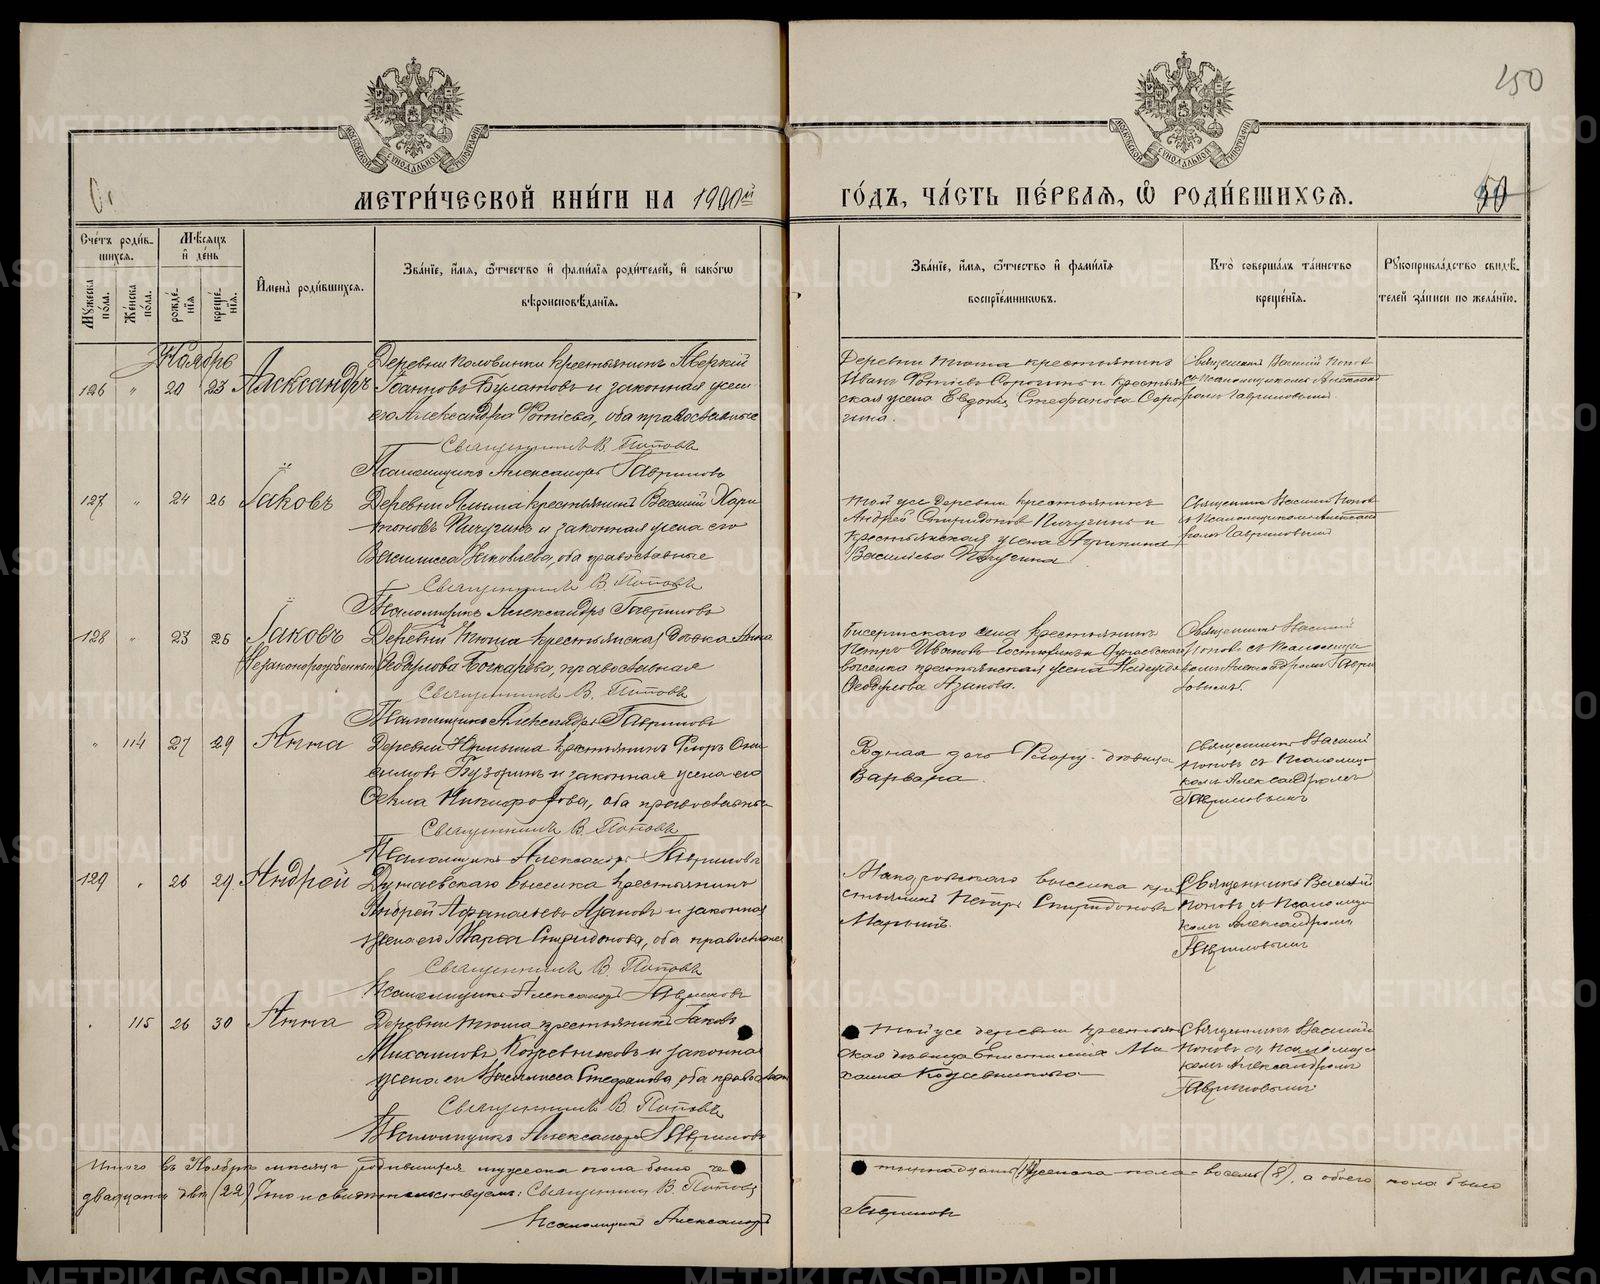 250
МЕТРИ́ЧЕСКОЙ КНИ́ГИ НА 1900й ГО́ДЪ, ЧА́СТЬ ПЕ́РВАЯ, Ѡ҆ РОДИ́ВШИХСЯ.
50
Сче́тъ роди́вшихся.
Му́жеска по́ла.
Же́нска по́ла.
Мѣ́сяцъ и҆ де́нь
рожде́нїя
креще́нїя.
И҆мена̀ роди́вшихся.
Зва́нїе, и҆́мя, ѻ҆́тчество и҆ фами́лїя роди́телей, и҆ како́гѡ
вѣроисповѣ́данїя.
Зва́нїе, и҆́мя, ѻ҆́тчество и҆ фами́лїя
воспрїе́мниковъ.
Кто̀ соверша́лъ та́инство
креще́нїя.
Рꙋкоприкла́дство свидѣ́телей за́писи по жела́нїю.
Ноябрь
126 " 20 23 Александръ
Деревни Половинки крестьянинъ Аверкій
Іоанновъ Булатовъ и законная жена
его Александра Фотіева, оба православные
Священникъ В. Поповъ
Псаломщикъ Александръ Гавриловъ
Деревни Тюша крестьянинъ
Иванъ Фотіевъ Сорогинъ и крестьянская жена Евдокія Стефанова Сорогина.
Священникъ Василій Поповъ
съ Псаломщикомъ Александромъ Гавриловымъ
127 " 24 26 Іаковъ
крестьянинъ Василій Харитоновъ Пичугинъ и законная жена его
Василисса Іаковлева, оба православные
Священникъ В. Поповъ
Псаломщикъ Александръ Гавриловъ
Той же деревни крестьянинъ
Андрей Спиридоновъ Пичугинъ и
крестьянская жена Агрипина
Васильева Пичугина
Священникъ Василій Поповъ
съ Псаломщикомъ Александромъ Гавриловымъ
128 " 23 25 Іаковъ
Незаконорожденный
Деревни Тюша крестьянская дочка Анна
Ѳеодулова Бочкарева, православная
Священникъ В. Поповъ
Псаломщикъ Александръ Гавриловъ
Бисертскаго села крестьянинъ
Петръ Ивановъ
выселка крестьянская жена
Ѳеодулова Азанова.
Священникъ Василій
Поповъ съ Псаломщикомъ Александромъ Гавриловымъ.
" 114 27 29 Анна
крестьянинъ Флоръ Онисимовъ Бузоринъ и законная жена его
Ѳекла Никифорова, оба православные
Священникъ В. Поповъ
Псаломщикъ Александръ Гавриловъ
Родная дочь Флору девица
Варвара.
Священникъ Василій
Поповъ съ Псаломщикомъ Александромъ
Гавриловымъ
129 " 26 29 Андрей
Дунаевскаго выселка крестьянинъ
Андрей Афанасьевъ Азановъ и законная
жена его Марѳа Спиридонова, оба православные
Священникъ В. Поповъ
Псаломщикъ Александръ Гавриловъ
выселка крестьянинъ Петръ Спиридоновъ
Священникъ Василій
Поповъ съ Псаломщикомъ Александромъ
Гавриловымъ
" 115 26 30 Анна
Деревни Тюша крестьянинъ Іаковъ
Михаиловъ Кожевниковъ и законная
жена его Василисса Стефанова, оба православные
Священникъ В. Поповъ
Псаломщикъ Александръ Гавриловъ
Той же деревни крестьянская девица Епистимія Михаила Кожевникова
Священникъ Василій
Поповъ съ Псаломщикомъ Александромъ
Гавриловымъ
Итого въ Ноябрѣ мѣсяцѣ родившихся мужеска пола было четырнадцать (14) женска пола восемь (8), а обоего пола было
двадцать два (22) Что и свидетельствуемъ: Священникъ В. Поповъ
Псаломщикъ Александръ Гавриловъ
METRIKI.GASO-URAL.RU